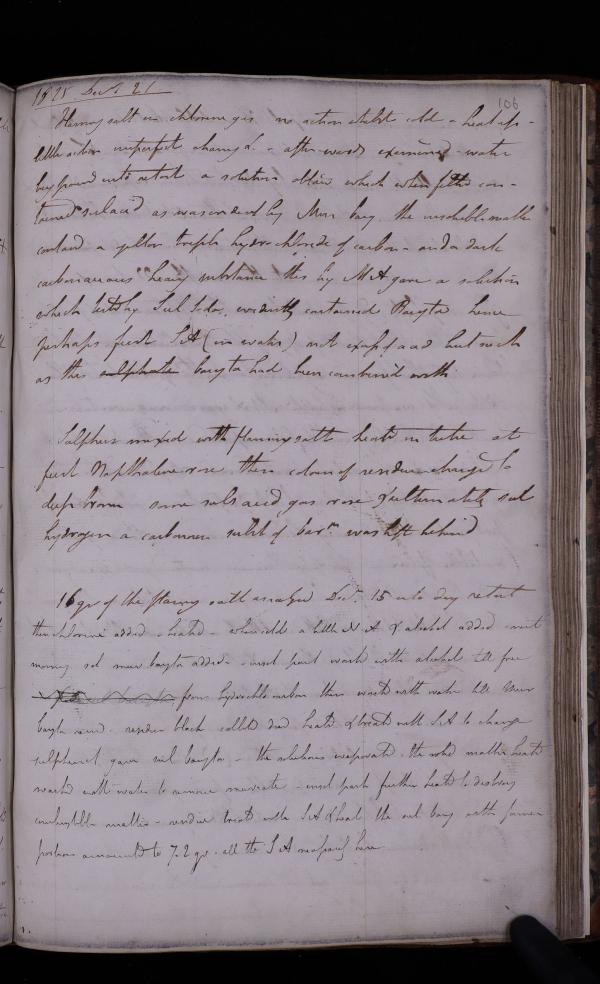 1825. Decr. 21
106
Flaming salt in chlorine gas no action whilst cold - heat up -
little action imperfect change - afterwards examined - water
being poured into retort a solution obtained which when filtered con-
tained sul acid as was evidenced by Mur bary. the insoluble matter
contained a yellow triple hydrochloride of carbon - and a dark
carbonaceous heavy substance this by M A gave a solution
which tested by Sul Soda, evidently contained Baryta hence
perhaps first S A (in water) not exactly acid but such
as the sulphate baryta had been combined with

Sulphur mixed with flaming salt heated in tube at
first Napthaline rose then colour of residue changed to
deep brown some sulS acid gas rose & ultimately sul
hydrogen a carbonaceous sulet of barm was left behind

16 gr of the flaming salt analysed Decr. 15 into dry retort
then chlorine added & heated - when cold a little N A & alcohol added
morning sol mur baryta added - insol part washed with alcohol till free
from hydrochl carbon then washed with water till Mur
baryta removed. residue black collected dried heated & treated with S A to change
sulphuret gave sul baryta - the solutions evaporated. the solid matter heated
washed with water to remove muriate - insol part further heated to destroy
combustible matter - residue treated with S A & heat the sul bary with former
portion amounted to 7.2 gr. all the S A here